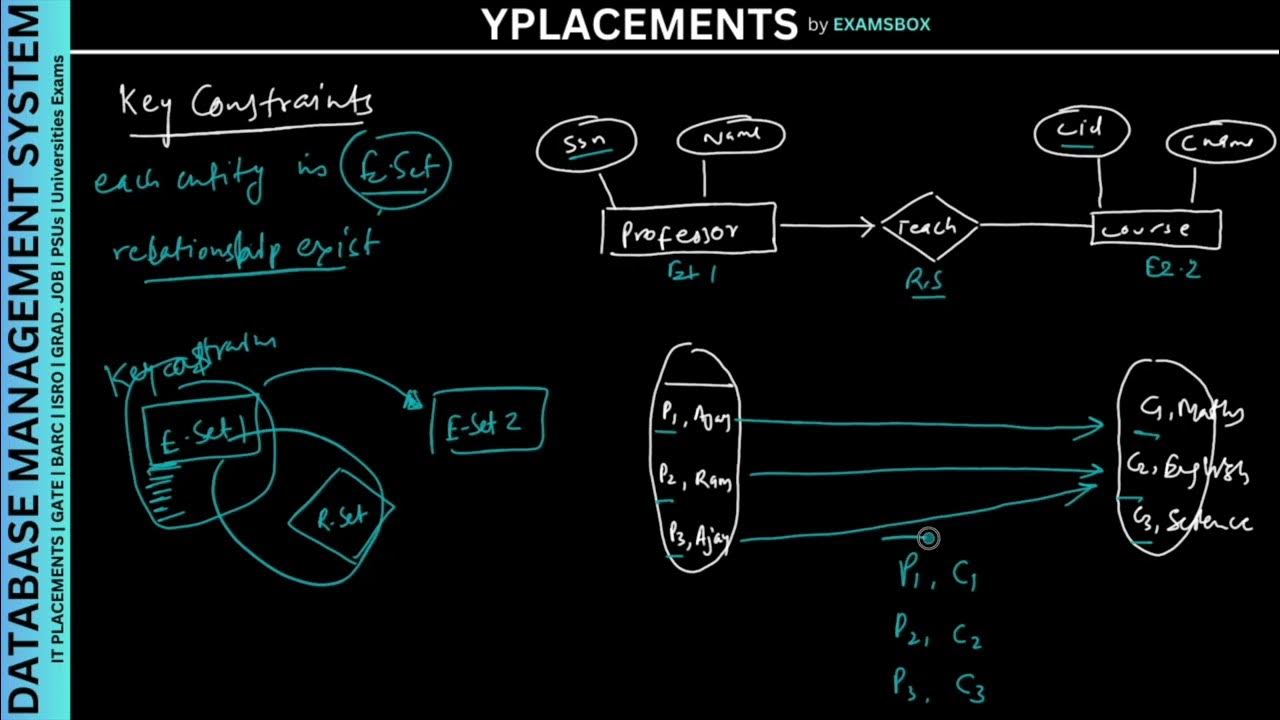 DATABASE MANAGEMENT SYSTEM
IT PLACEMENTS | GATE | BARC | ISRO | GRAD. JOB | PSUs | Universities Exams
YPLACEMENTS by EXAMSBOX
Key Constraints
each entity in E.Set
relationship exist
Ssn
Name
Cid
Cname
Professor
Teach
Course
R.S
E-Set 1
E-Set 2
R.Set
P1, Ajay
P2, Ram
P3, Ajay
C1, Maths
C2, English
C3, Science
P1, C1
P2, C2
P3, C3